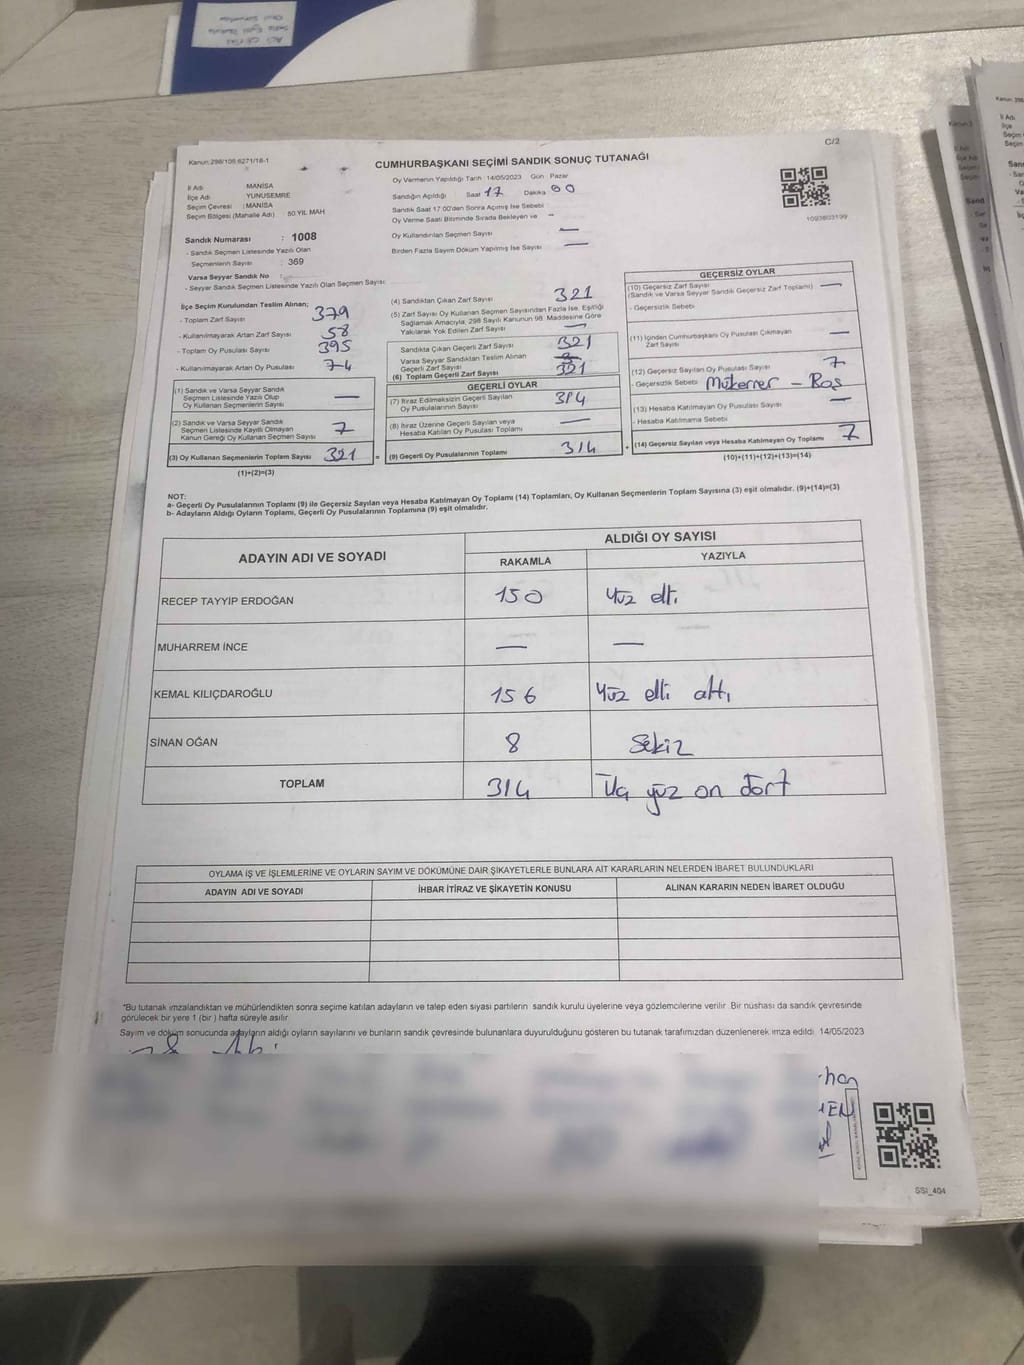 C/2
Kanun:298/106 6271/18-1
CUMHURBAŞKANI SEÇİMİ SANDIK SONUÇ TUTANAĞI
İl Adı MANİSA
İlçe Adı YUNUSEMRE
Seçim Çevresi : MANİSA
Seçim Bölgesi (Mahalle Adı) : 50.YIL MAH
Sandık Numarası : 1008
- Sandık Seçmen Listesinde Yazılı Olan
Seçmenlerin Sayısı : 369
Varsa Seyyar Sandık No :
- Seyyar Sandık Seçmen Listesinde Yazılı Olan Seçmen Sayısı:
Oy Vermenin Yapıldığı Tarih 14/05/2023 Gün Pazar
Sandığın Açıldığı Saat 17 Dakika 00
Sandık Saat 17:00'den Sonra Açılmış İse Sebebi
Oy Verme Saati Bitiminde Sırada Bekleyen ve —
Oy Kullandırılan Seçmen Sayısı —
Birden Fazla Sayım Döküm Yapılmış İse Sayısı —
1093803199
İlçe Seçim Kurulundan Teslim Alınan;
- Toplam Zarf Sayısı 379
- Kullanılmayarak Artan Zarf Sayısı 58
- Toplam Oy Pusulası Sayısı 395
- Kullanılmayarak Artan Oy Pusulası 74
(1) Sandık ve Varsa Seyyar Sandık
Seçmen Listesinde Yazılı Olup
Oy Kullanan Seçmenlerin Sayısı —
(2) Sandık ve Varsa Seyyar Sandık
Seçmen Listesinde Kayıtlı Olmayan
Kanun Gereği Oy Kullanan Seçmen Sayısı 7
(3) Oy Kullanan Seçmenlerin Toplam Sayısı 321 =
(1)+(2)=(3)
(4) Sandıktan Çıkan Zarf Sayısı 321
(5) Zarf Sayısı Oy Kullanan Seçmen Sayısından Fazla İse, Eşitliği
Sağlamak Amacıyla, 298 Sayılı Kanunun 98. Maddesine Göre
Yakılarak Yok Edilen Zarf Sayısı —
Sandıkta Çıkan Geçerli Zarf Sayısı 321
Varsa Seyyar Sandıktan Teslim Alınan
Geçerli Zarf Sayısı
(6) Toplam Geçerli Zarf Sayısı 321
GEÇERLİ OYLAR
(7) İtiraz Edilmeksizin Geçerli Sayılan
Oy Pusulalarının Sayısı 314
(8) İtiraz Üzerine Geçerli Sayılan veya
Hesaba Katılan Oy Pusulası Toplamı —
(9) Geçerli Oy Pusulalarının Toplamı 314 +
GEÇERSİZ OYLAR
(10) Geçersiz Zarf Sayısı
(Sandık ve Varsa Seyyar Sandık Geçersiz Zarf Toplamı) —
- Geçersizlik Sebebi
(11) İçinden Cumhurbaşkanı Oy Pusulası Çıkmayan
Zarf Sayısı —
(12) Geçersiz Sayılan Oy Pusulası Sayısı 7
- Geçersizlik Sebebi Mükerrer - Boş
(13) Hesaba Katılmayan Oy Pusulası Sayısı —
- Hesaba Katılmama Sebebi
(14) Geçersiz Sayılan veya Hesaba Katılmayan Oy Toplamı 7
(10)+(11)+(12)+(13)=(14)
NOT:
a- Geçerli Oy Pusulalarının Toplamı (9) ile Geçersiz Sayılan veya Hesaba Katılmayan Oy Toplamı (14) Toplamları, Oy Kullanan Seçmenlerin Toplam Sayısına (3) eşit olmalıdır. (9)+(14)=(3)
b- Adayların Aldığı Oyların Toplamı, Geçerli Oy Pusulalarının Toplamına (9) eşit olmalıdır.
ADAYIN ADI VE SOYADI ALDIĞI OY SAYISI
RAKAMLA YAZIYLA
RECEP TAYYİP ERDOĞAN 150 Yüz elli
MUHARREM İNCE — —
KEMAL KILIÇDAROĞLU 156 Yüz elli altı
SİNAN OĞAN 8 Sekiz
TOPLAM 314 Üç yüz on dört
OYLAMA İŞ VE İŞLEMLERİNE VE OYLARIN SAYIM VE DÖKÜMÜNE DAİR ŞİKAYETLERLE BUNLARA AİT KARARLARIN NELERDEN İBARET BULUNDUKLARI
ADAYIN ADI VE SOYADI İHBAR İTİRAZ VE ŞİKAYETİN KONUSU ALINAN KARARIN NEDEN İBARET OLDUĞU
*Bu tutanak imzalandıktan ve mühürlendikten sonra seçime katılan adayların ve talep eden siyasi partilerin sandık kurulu üyelerine veya gözlemcilerine verilir. Bir nüshası da sandık çevresinde
görülecek bir yere 1 (bir ) hafta süreyle asılır
Sayım ve döküm sonucunda adayların aldığı oyların sayılarını ve bunların sandık çevresinde bulunanlara duyurulduğunu gösteren bu tutanak tarafımızdan düzenlenerek imza edildi 14/05/2023
SSI_404